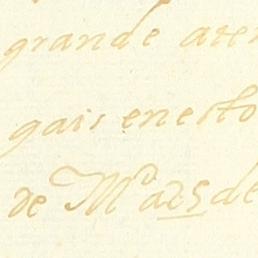 grande aten
gais enesto
de M.d a 25 de